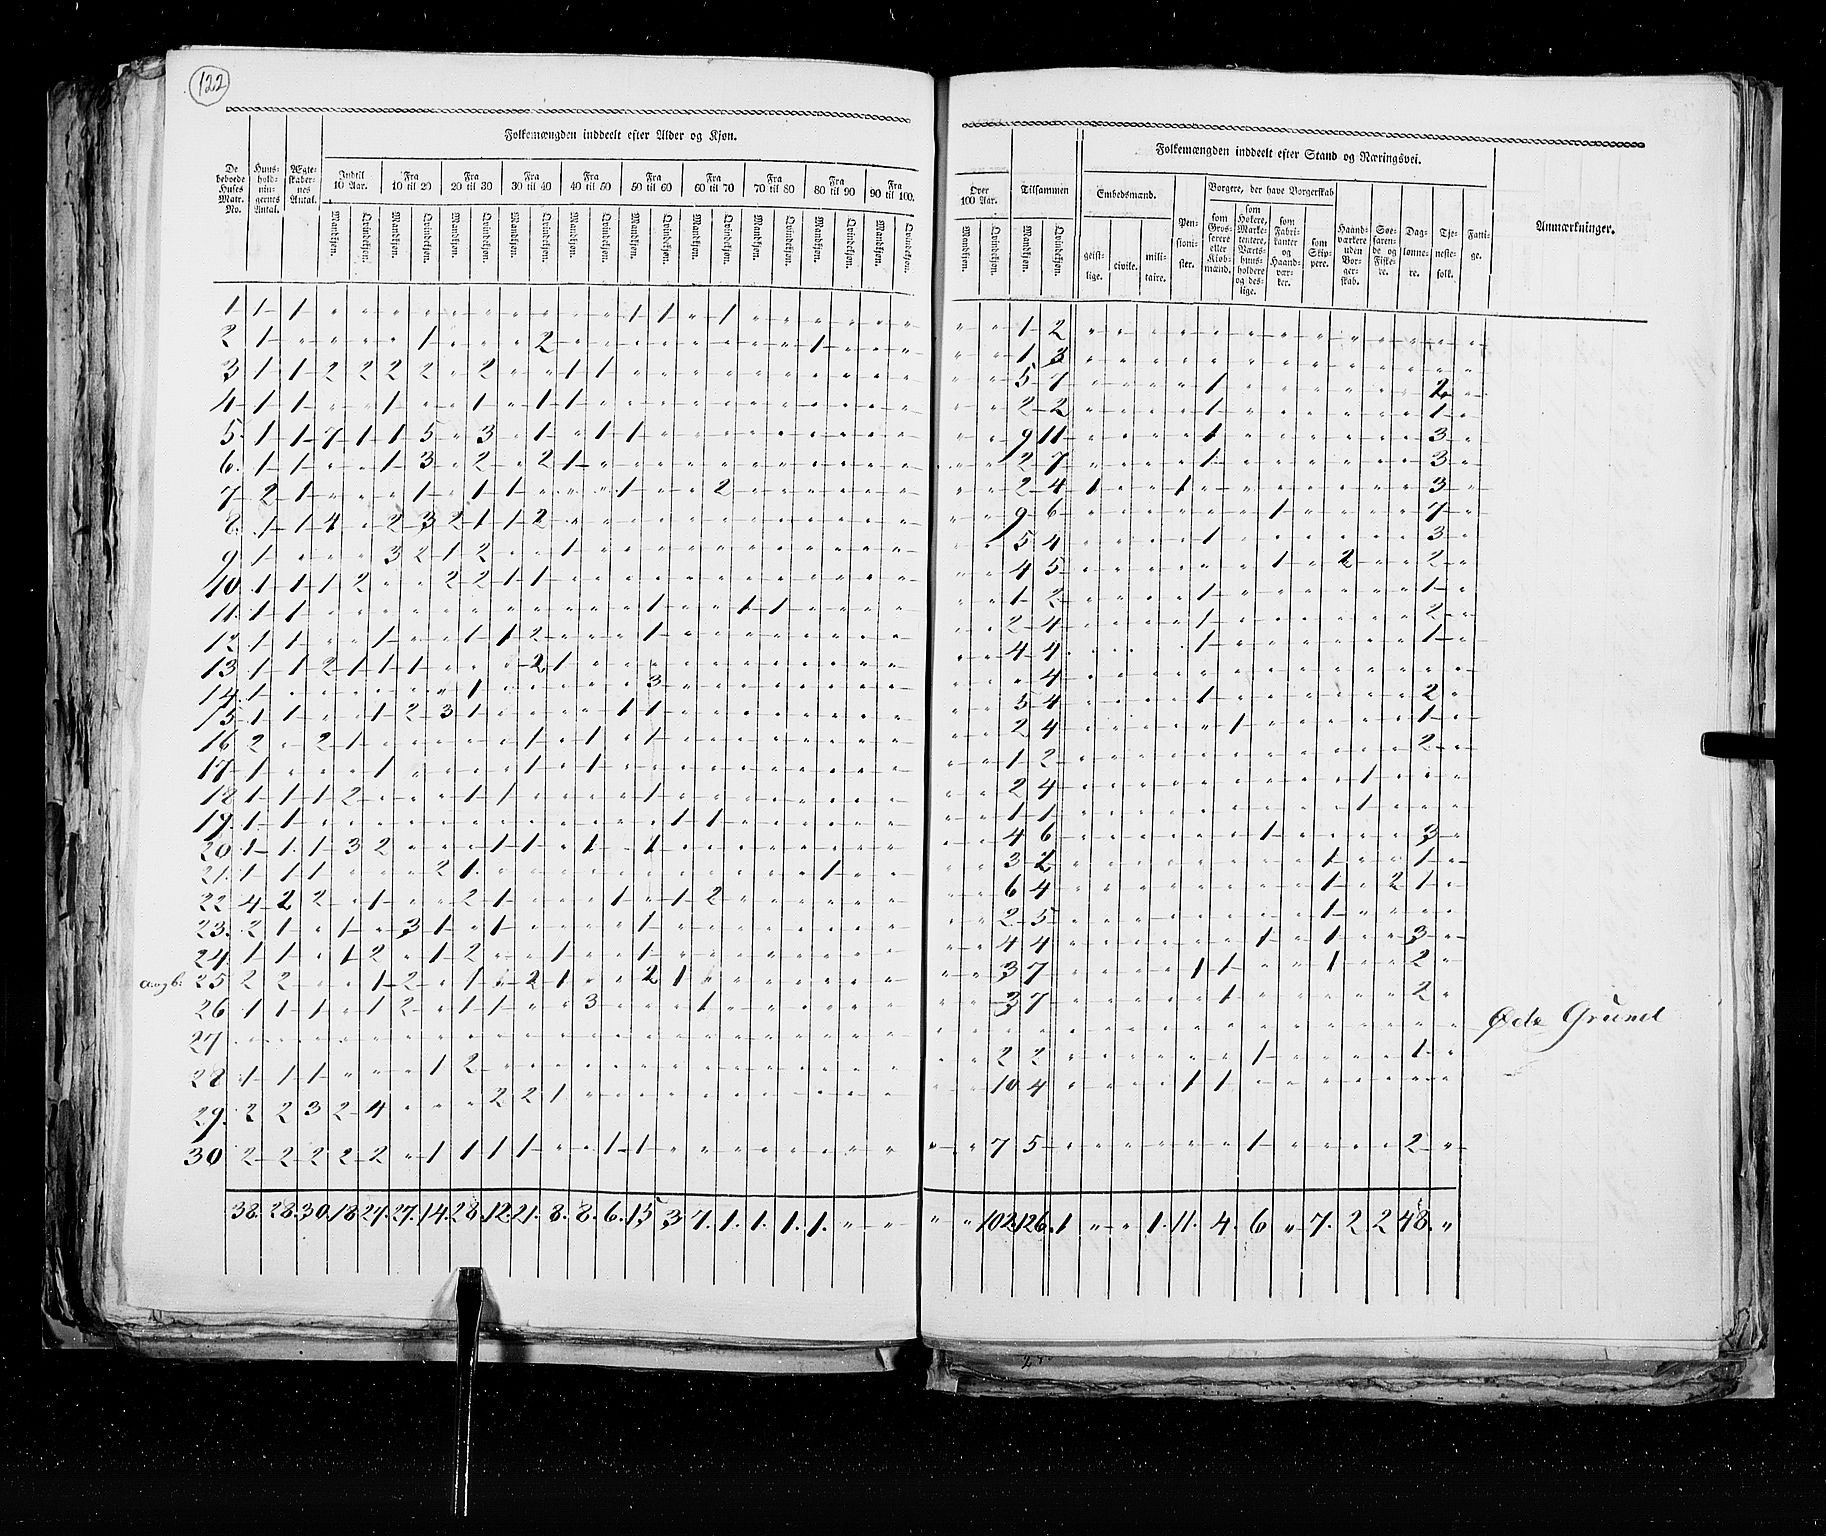 122
Folkemængden inddeelt efter Alder og Kjøn.
De beboede Huses Matr. No.
Huus-hold-nin-gernes Antal.
Ægte-skaber-nes Antal.
Indtil 10 Aar.
Fra 10 til 20
Fra 20 til 30
Fra 30 til 40
Fra 40 til 50
Fra 50 til 60
Fra 60 til 70
Fra 70 til 80
Fra 80 til 90
Fra 90 til 100.
Mandkjøn. Qvindekjøn. Mandkjøn. Qvindekjøn. Mandkjøn. Qvindekjøn. Mandkjøn. Qvindekjøn. Mandkjøn. Qvindekjøn. Mandkjøn. Qvindekjøn. Mandkjøn. Qvindekjøn. Mandkjøn. Qvindekjøn. Mandkjøn. Qvindekjøn. Mandkjøn. Qvindekjøn.
1 1 1 1 1 1
2 1 1 2 1
3 1 1 2 2 2 2 2 1 1
4 1 1 1 1 1 1
5 1 1 7 1 1 5 3 1 1 1
6 1 1 1 3 2 2 1
7 2 1 1 1 1 1 2
8 1 1 4 2 3 2 1 1 2
9 1 3 2 1 2 1
10 1 1 1 2 2 2 1 1
11 1 1 1 1 1
12 1 1 1 1 1 2 1
13 1 1 2 1 1 1 2 1
14 1 1 3
15 1 1 1 2 3 1 1 1
16 2 2 1 1 1 1
17 1 1 1 1
18 1 1 1 2 1 1 1
19 1 1 1 1
20 1 1 1 3 2 1 1 1 1
21 1 1 1 2 1 1
22 4 2 2 1 2 1 1 1 2
23 2 1 1 3 1 1 1
24 1 1 1 2 1 2 1 1
a og b: 25 2 2 1 2 1 2 1 2 1
26 1 1 1 1 2 1 1 3 1
27
28 1 1 1 1 2
29 2 2 3 2 4 2 2 1
30 2 2 2 2 2 1 1 1 1 1 1
38. 28. 30. 18. 27. 27. 14. 28. 12. 21. 8. 8. 6. 15 3 7. 1. 1. 1. 1. " "
Folkemængden inddeelt efter Stand og Næringsvei.
Over 100 Aar.
Mandkjøn. Qvindekjøn.
Tilsammen
Mandkjøn. Qvindekjøn.
Embedsmænd.
geist-lige.
civile.
mili-taire.
Pen-sioni-ster.
Borgere, der have Borgerskab
som Gros-serere eller Kiøb-mænd.
som Høkere, Marke-tentere, Værts-huus-holdere og des-lige.
som Fabri-kanter og Haand-vær-ker.
som Skip-pere.
Haand-værkere uden Bor-ger-skab.
Søe-faren-de og Fiske-re.
Dag-lønne-re.
Tje-neste-folk.
Fatti-ge.
Anmærkninger.
1 2
1 3
5 7 1 2
2 2 1 1
9 11 1 3
2 7 1 3
2 4 1 1 3
9 6 1 7
5 4 1 3
4 5 1 2 2
1 2 1 1
2 4 1 2
4 4 1 1
4
5 4 1 2
2 4 1 1
1 2 2
2 4 1
1 1 1
4 6 1 3
3 2 1 1
6 4 1 2 1
2 5 1
4 4 1 1 3
3 7 1 1 1 2
3 7 1 2
Øde Grund
2 2 1 1
10 4 1 1
7 5 1 2
" " 102 126. 1 " " 1. 11. 4. 6 " 7. 2 2 48. "